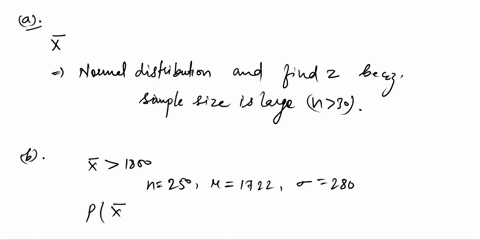 (a).
x̄
⇒ Normal distribution and find z becaz.
sample size is large (n>30).
(b). x̄ > 1800
n=250, μ=1722, σ=280
P( x̄